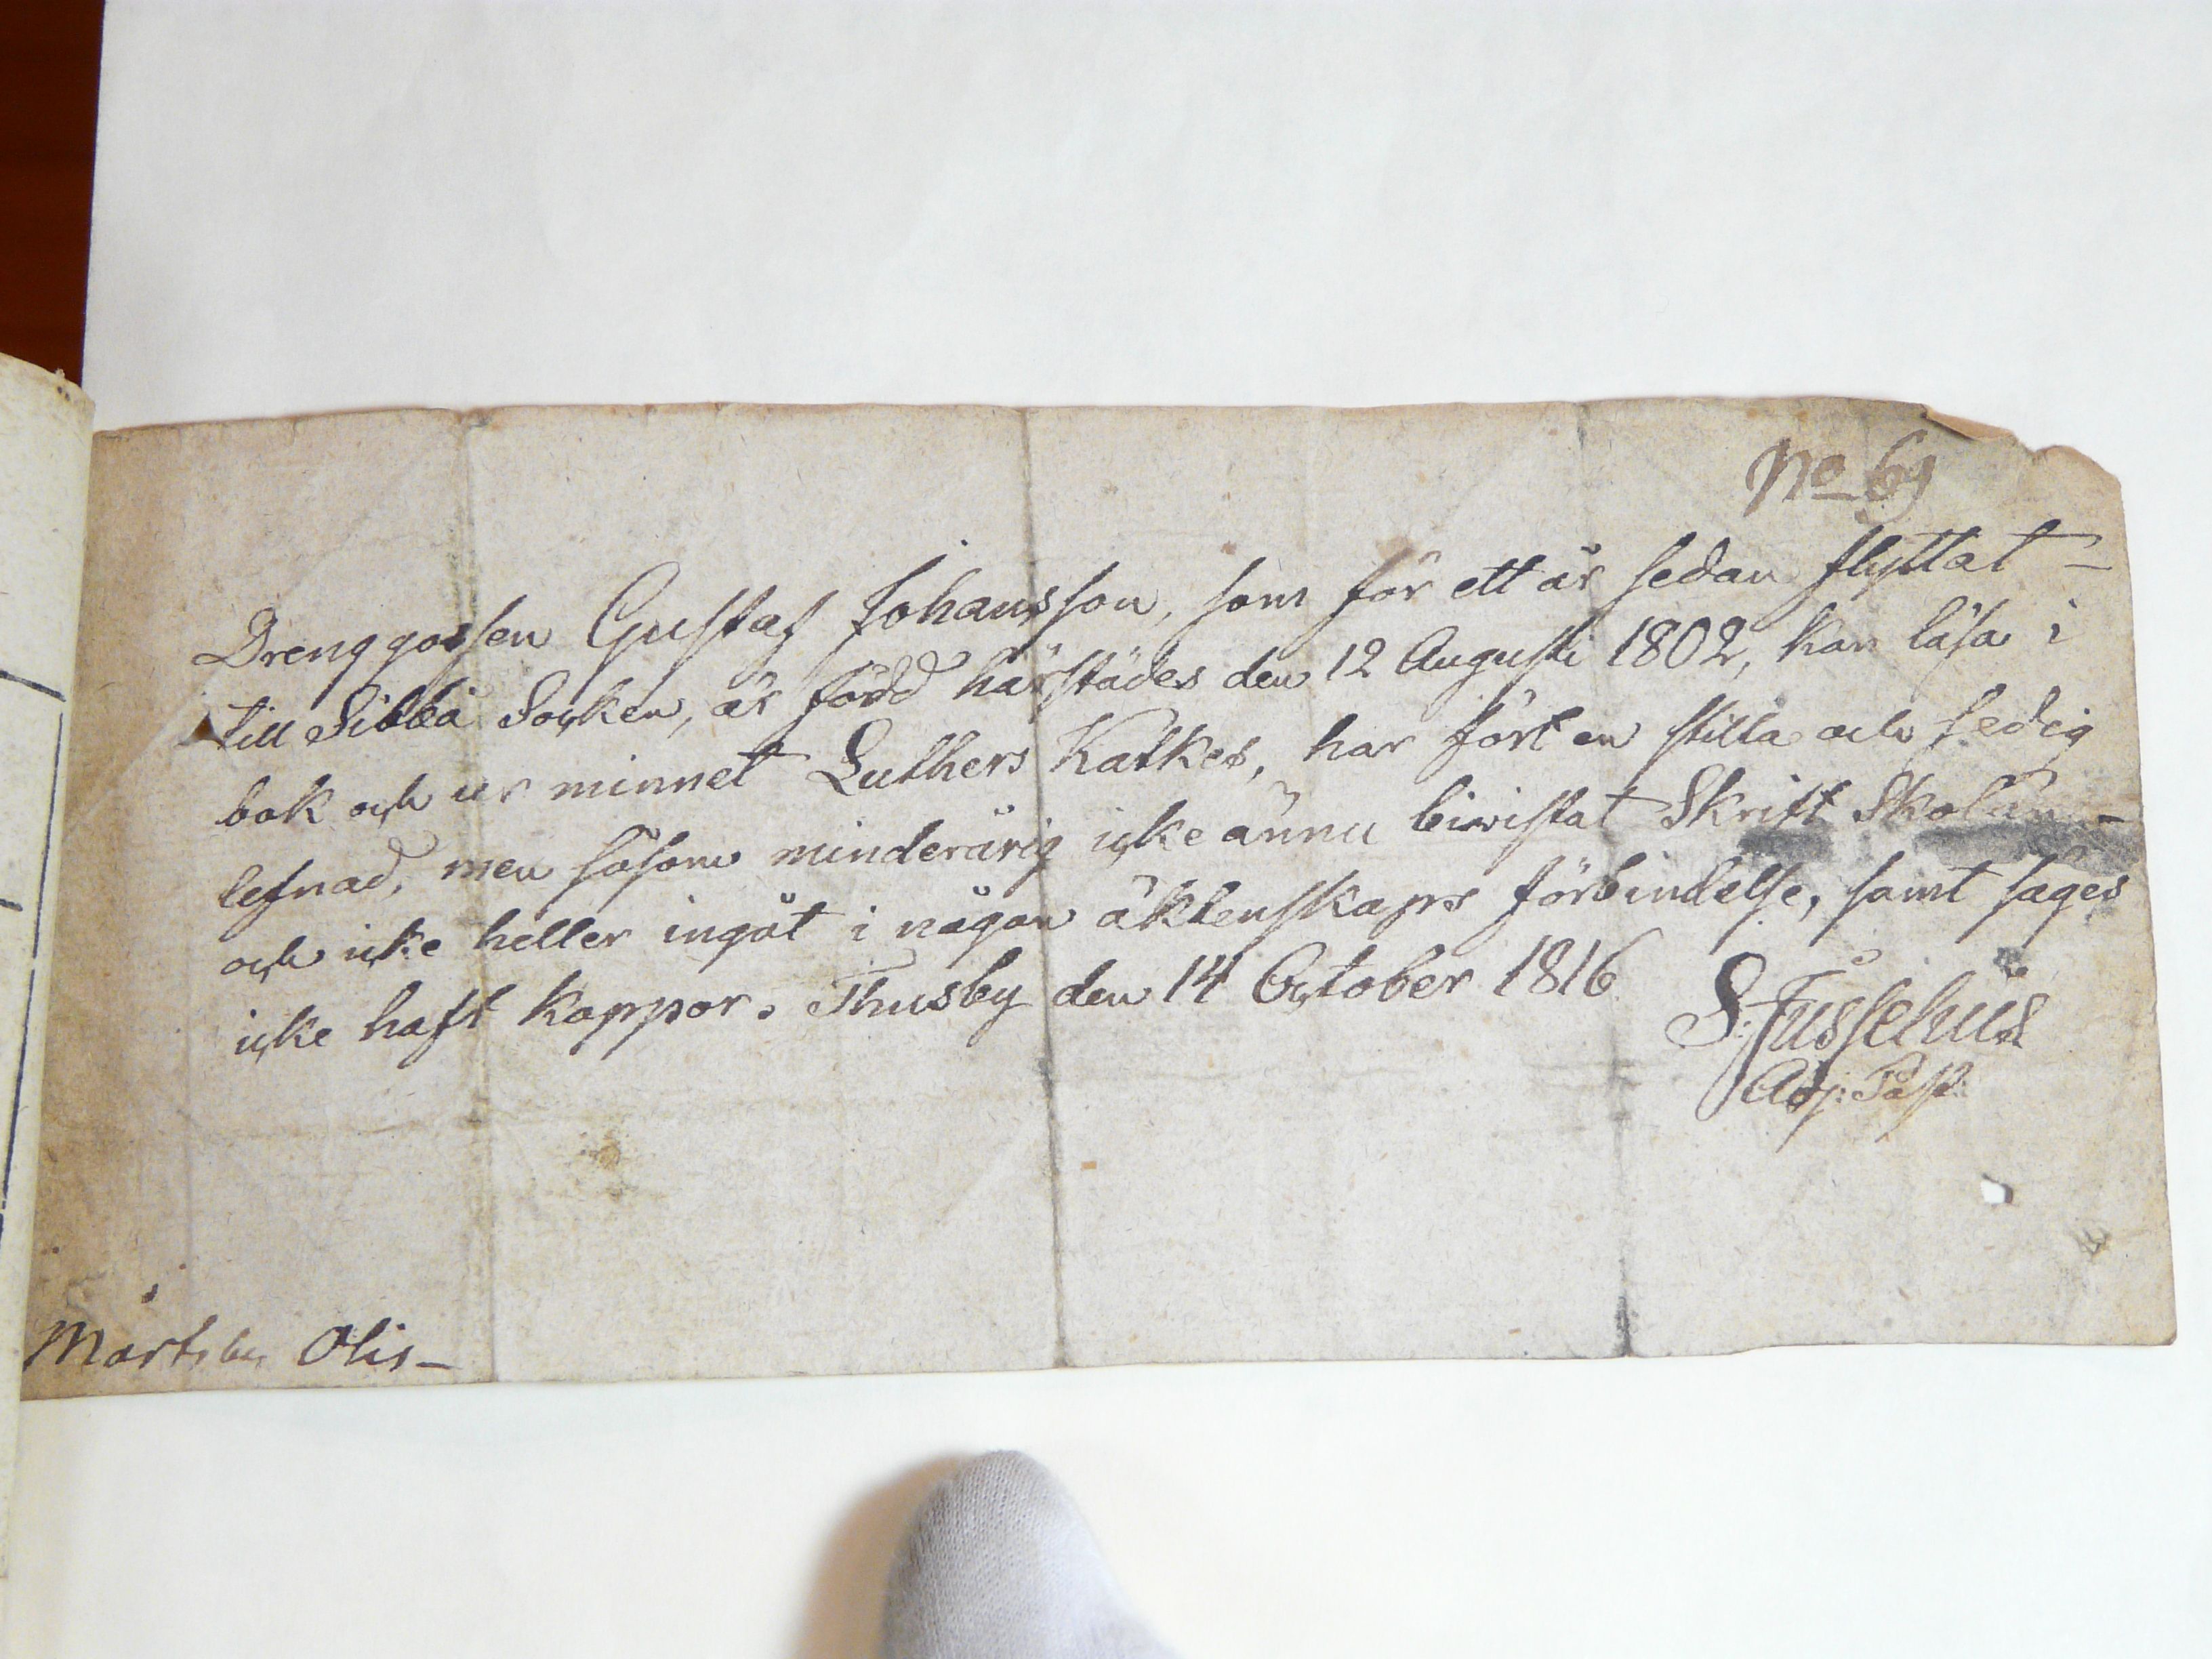 No 69
Drenggossen Gustaf Johansson, som för ett år sedan flyttat -
till Sibbå Socken, är född härstädes den 12 Augusti 1802, kan läsa i
bok och ur minnet Luthers Katkes, har fört en stilla och sedig
lefnad, men såsom minderårig icke ännu biwistat Skrift Skolan -
och icke heller ingåt i någon äktenskaps förbindelse, samt säges
icke haft koppor. Thusby den 14 October 1816
Adj: Past:
Mårtsby Olis -